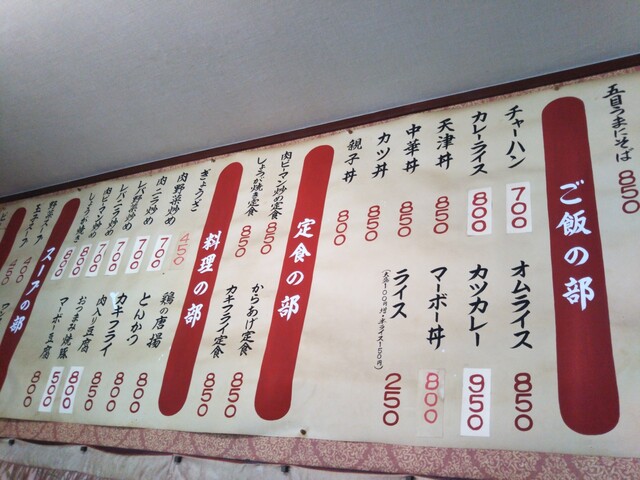 五目うまにそば 850
ご飯の部
チャーハン 700
カレーライス 800
天津丼 850
中華丼 850
カツ丼 850
親子丼 800
オムライス 850
カツカレー 950
マーボー丼 800
ライス 250
定食の部
肉ピーマン炒め定食 850
しょうが焼き定食 850
からあげ定食 850
カキフライ定食 850
料理の部
ぎょうざ 450
肉野菜炒め 700
肉ニラ炒め 700
レバ野菜炒め 700
レバニラ炒め 700
肉ピーマン炒め 800
しょうが焼き 800
鶏の唐揚 850
とんかつ 800
カキフライ 800
肉入り豆腐 850
おつまみ焼豚 800
マーボー豆腐 500
800
スープの部
野菜スープ 400
玉子スープ 450